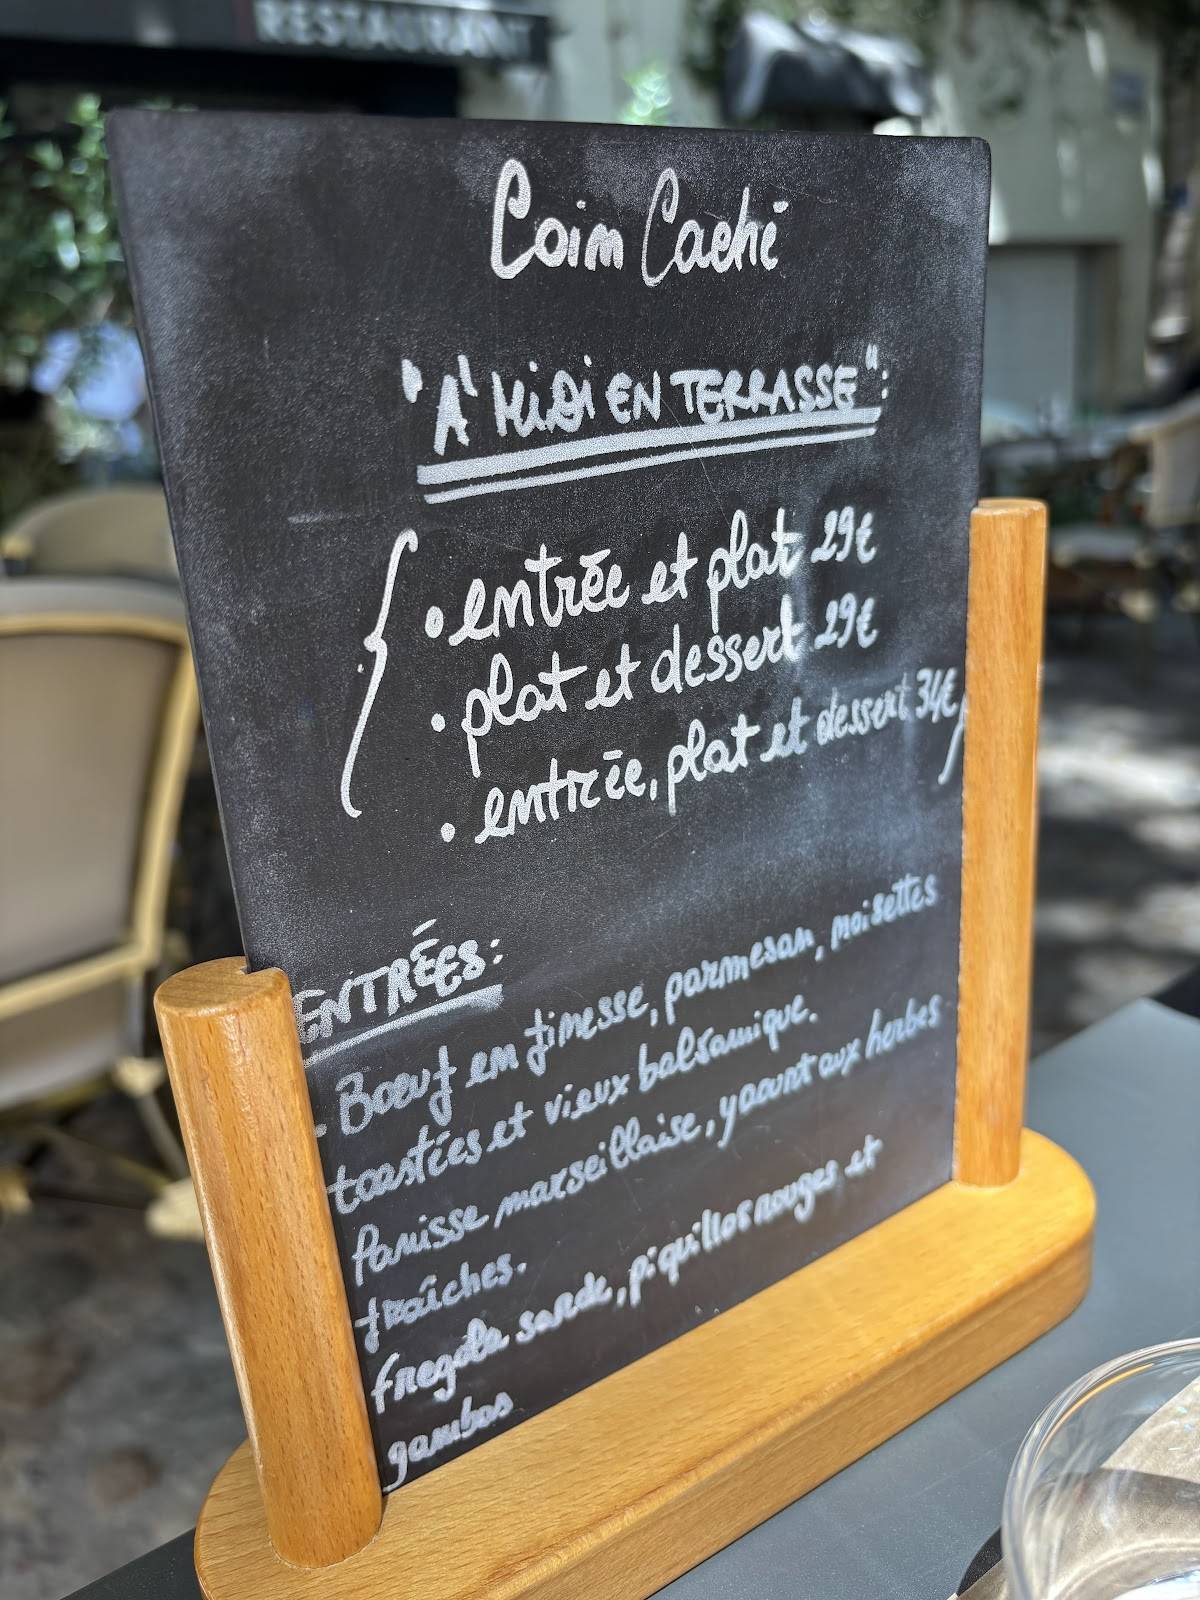 RESTAURANT
Coin Caché
"A" MiDi EN TERRASSE":
• entrée et plat 29€
• plat et dessert 29€
• entrée, plat et dessert 34€
ENTRÉES:
• Boeuf en finesse, parmesan, noisettes
toastées et vieux balsamique.
Panisse marseillaise, yaourt aux herbes
fraîches.
Fregola sarde, piquillos rouges et
gambas